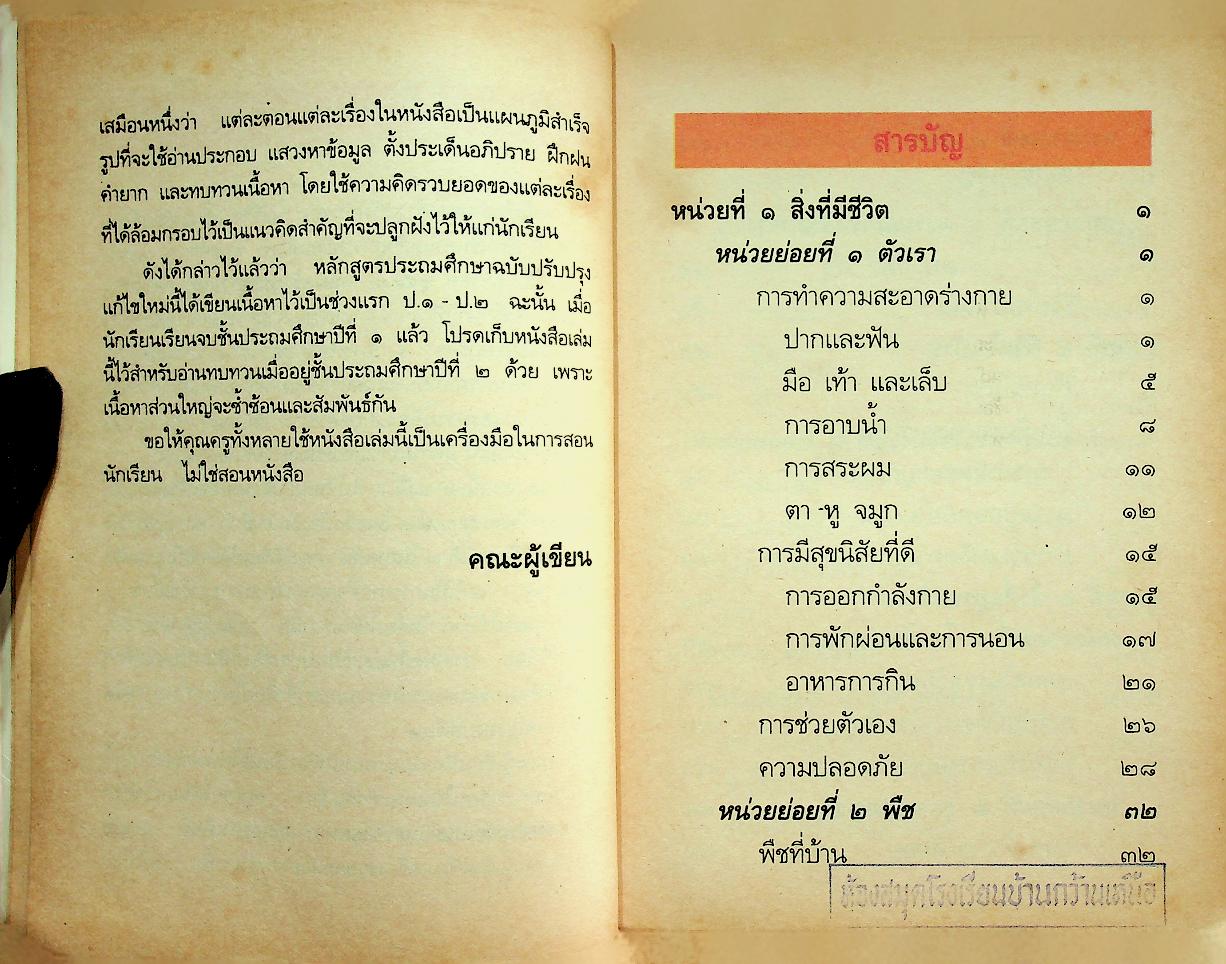 เสมือนหนึ่งว่า แต่ละตอนแต่ละเรื่องในหนังสือเป็นแผนภูมิสำเร็จ
รูปที่จะใช้อ่านประกอบ แสวงหาข้อมูล ตั้งประเด็นอภิปราย ฝึกฝน
คำยาก และทบทวนเนื้อหา โดยใช้ความคิดรวบยอดของแต่ละเรื่อง
ที่ได้ล้อมกรอบไว้เป็นแนวคิดสำคัญที่จะปลูกฝังไว้ให้แก่นักเรียน
ดังได้กล่าวไว้แล้วว่า หลักสูตรประถมศึกษาฉบับปรับปรุง
แก้ไขใหม่นี้ได้เขียนเนื้อหาไว้เป็นช่วงแรก ป.๑ - ป.๒ ฉะนั้น เมื่อ
นักเรียนเรียนจบชั้นประถมศึกษาปีที่ ๑ แล้ว โปรดเก็บหนังสือเล่ม
นี้ไว้สำหรับอ่านทบทวนเมื่ออยู่ชั้นประถมศึกษาปีที่ ๒ ด้วย เพราะ
เนื้อหาส่วนใหญ่จะซ้ำซ้อนและสัมพันธ์กัน
ขอให้คุณครูทั้งหลายใช้หนังสือเล่มนี้เป็นเครื่องมือในการสอน
นักเรียน ไม่ใช่สอนหนังสือ
คณะผู้เขียน
สารบัญ
หน่วยที่ ๑ สิ่งที่มีชีวิต ๑
หน่วยย่อยที่ ๑ ตัวเรา ๑
การทำความสะอาดร่างกาย ๑
ปากและฟัน ๑
มือ เท้า และเล็บ ๕
การอาบน้ำ ๘
การสระผม ๑๑
ตา -หู จมูก ๑๒
การมีสุขนิสัยที่ดี ๑๕
การออกกำลังกาย ๑๕
การพักผ่อนและการนอน ๑๗
อาหารการกิน ๒๑
การช่วยตัวเอง ๒๖
ความปลอดภัย ๒๘
หน่วยย่อยที่ ๒ พืช ๓๒
พืชที่บ้าน ๓๒
ห้องสมุดโรงเรียนบ้านกว้านเหนือ